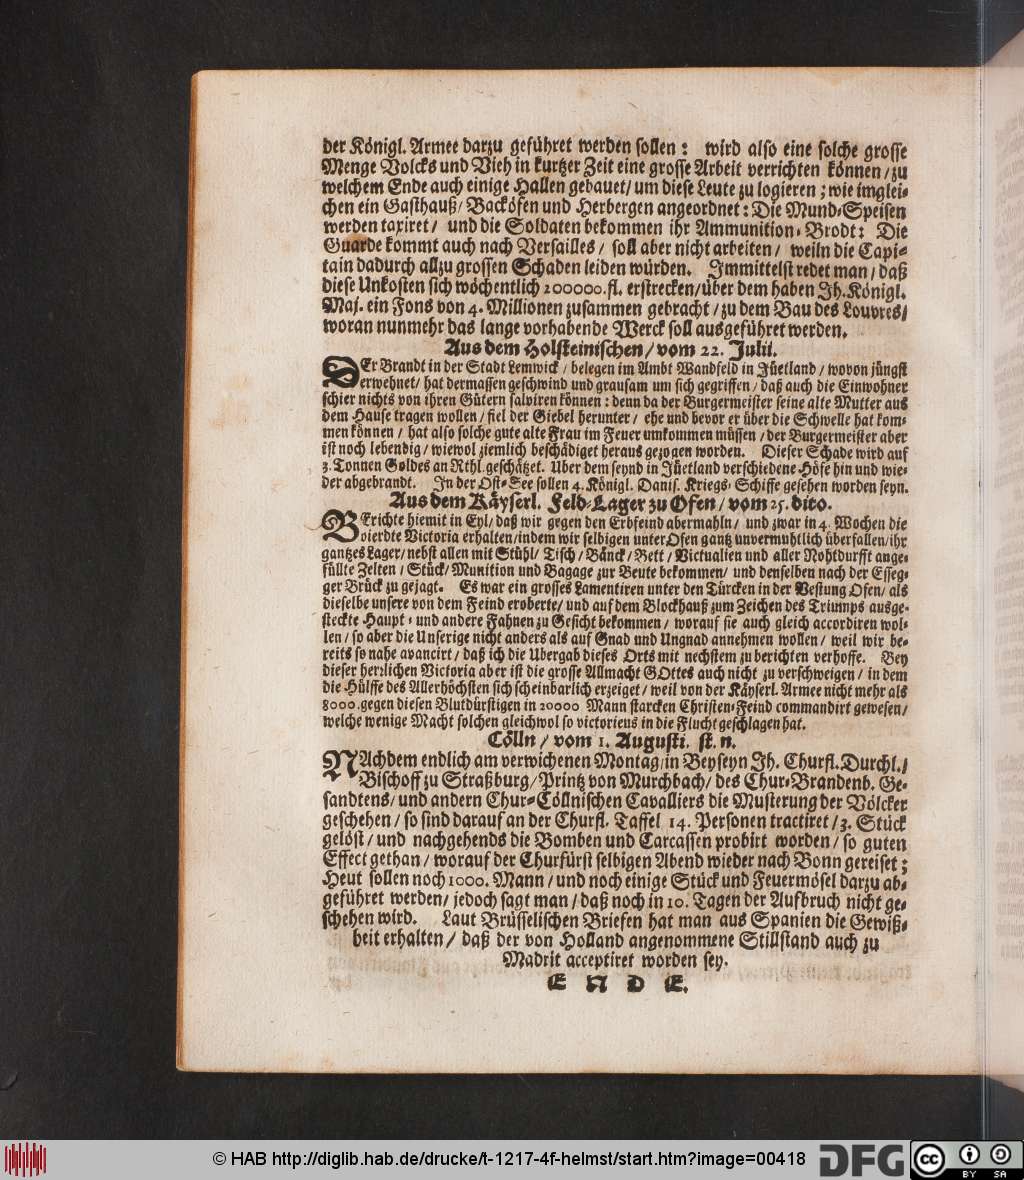 der Königl. Armee darzu geführet werden sollen: wird also eine solche grosse
Menge Volcks und Vieh in kurtzer Zeit eine grosse Arbeit verrichten können/ zu
welchem Ende auch einige Hallen gebauet/ um diese Leute zu logieren; wie imglei-
chen ein Gasthauß/ Backöfen und Herbergen angeordnet: Die Mund-Speisen
werden taxiret/ und die Soldaten bekommen ihr Ammunition-Brodt: Die
Guarde kommt auch nach Versailles/ soll aber nicht arbeiten/ weiln die Capi-
tain dadurch allzu grossen Schaden leiden würden. Immittelst redet man/ daß
diese Unkosten sich wöchentlich 200000. fl. erstrecken/ über dem haben Jh. Königl.
Maj. ein Fons von 4. Millionen zusammen gebracht/ zu dem Bau des Louvres/
woran nunmehr das lange vorhabende Werck soll ausgeführet werden.
Aus dem Holsteinischen/ vom 22. Julii.
DEr Brandt in der Stadt Lemwick/ belegen im Ambt Wandfeld in Jüetland/ wovon jüngst
erwehnet/ hat dermassen geschwind und grausam um sich gegriffen/ daß auch die Einwohner
schier nichts von ihren Gütern salviren können: denn da der Burgermeister seine alte Mutter aus
dem Hause tragen wollen/ fiel der Giebel herunter/ ehe und bevor er über die Schwelle hat kom-
men können/ hat also solche gute alte Frau im Feuer umkommen müssen/ der Burgermeister aber
ist noch lebendig/ wiewol ziemlich beschädiget heraus gezogen worden. Dieser Schade wird auf
3. Tonnen Goldes an Rthl. geschätzet. Uber dem seynd in Jüetland verschiedene Höfe hin und wie-
der abgebrandt. Jn der Ost-See sollen 4. Königl. Danis. Kriegs-Schiffe gesehen worden seyn.
Aus dem Käyserl. Feld-Lager zu Ofen/ vom 25. dito.
BErichte hiemit in Eyl/ daß wir gegen den Erbfeind abermahln/ und zwar in 4. Wochen die
vierdte Victoria erhalten/ indem wir selbigen unter Ofen gantz unvermuhtlich überfallen/ ihr
gantzes Lager/ nebst allen mit Stühl/ Tisch/ Bänck/ Bett/ Victualien und aller Nohtdurfft ange-
füllte Zelten/ Stück/ Munition und Bagage zur Beute bekommen/ und denselben nach der Esseg-
ger Brück zu gejagt. Es war ein grosses Lamentiren unter den Türcken in der Vestung Ofen/ als
dieselbe unsere von dem Feind eroberte/ und auf dem Blockhauß zum Zeichen des Triumps ausge-
steckte Haupt- und andere Fahnen zu Gesicht bekommen/ worauf sie auch gleich accordiren wol-
len/ so aber die Unserige nicht anders als auf Gnad und Ungnad annehmen wollen/ weil wir be-
reits so nahe avancirt/ daß ich die Ubergab dieses Orts mit nechstem zu berichten verhoffe. Bey
dieser herrlichen Victoria aber ist die grosse Allmacht GOttes auch nicht zu verschweigen/ in dem
die Hülffe des Allerhöchsten sich scheinbarlich erzeiget/ weil von der Käyserl. Armee nicht mehr als
8000. gegen diesen Blutdürstigen in 20000 Mann starcken Christen-Feind commandirt gewesen/
welche wenige Macht solchen gleichwol so victorieus in die Flucht geschlagen hat.
Cölln/ vom 1. Augusti. st. n.
NAchdem endlich am verwichenen Montag/ in Beyseyn Jh. Churfl. Durchl./
Bischoff zu Straßburg/ Printz von Murchbach/ des Chur-Brandenb. Ge-
sandtens/ und andern Chur-Cöllnischen Cavalliers die Musterung der Völcker
geschehen/ so sind darauf an der Churfl. Taffel 14. Personen tractiret/ 3. Stück
gelöst/ und nachgehends die Bomben und Carcassen probirt worden/ so guten
Effect gethan/ worauf der Churfürst selbigen Abend wieder nach Bonn gereiset;
Heut sollen noch 1000. Mann/ und noch einige Stück und Feuermösel darzu ab-
geführet werden/ jedoch sagt man/ daß noch in 10. Tagen der Aufbruch nicht ge-
schehen wird. Laut Brüsselischen Briefen hat man aus Spanien die Gewiß-
heit erhalten/ daß der von Holland angenommene Stillstand auch zu
Madrit acceptiret worden sey.
E N D E.
© HAB http://diglib.hab.de/drucke/t-1217-4f-helmst/start.htm?image=00418
DFG
cc BY SA